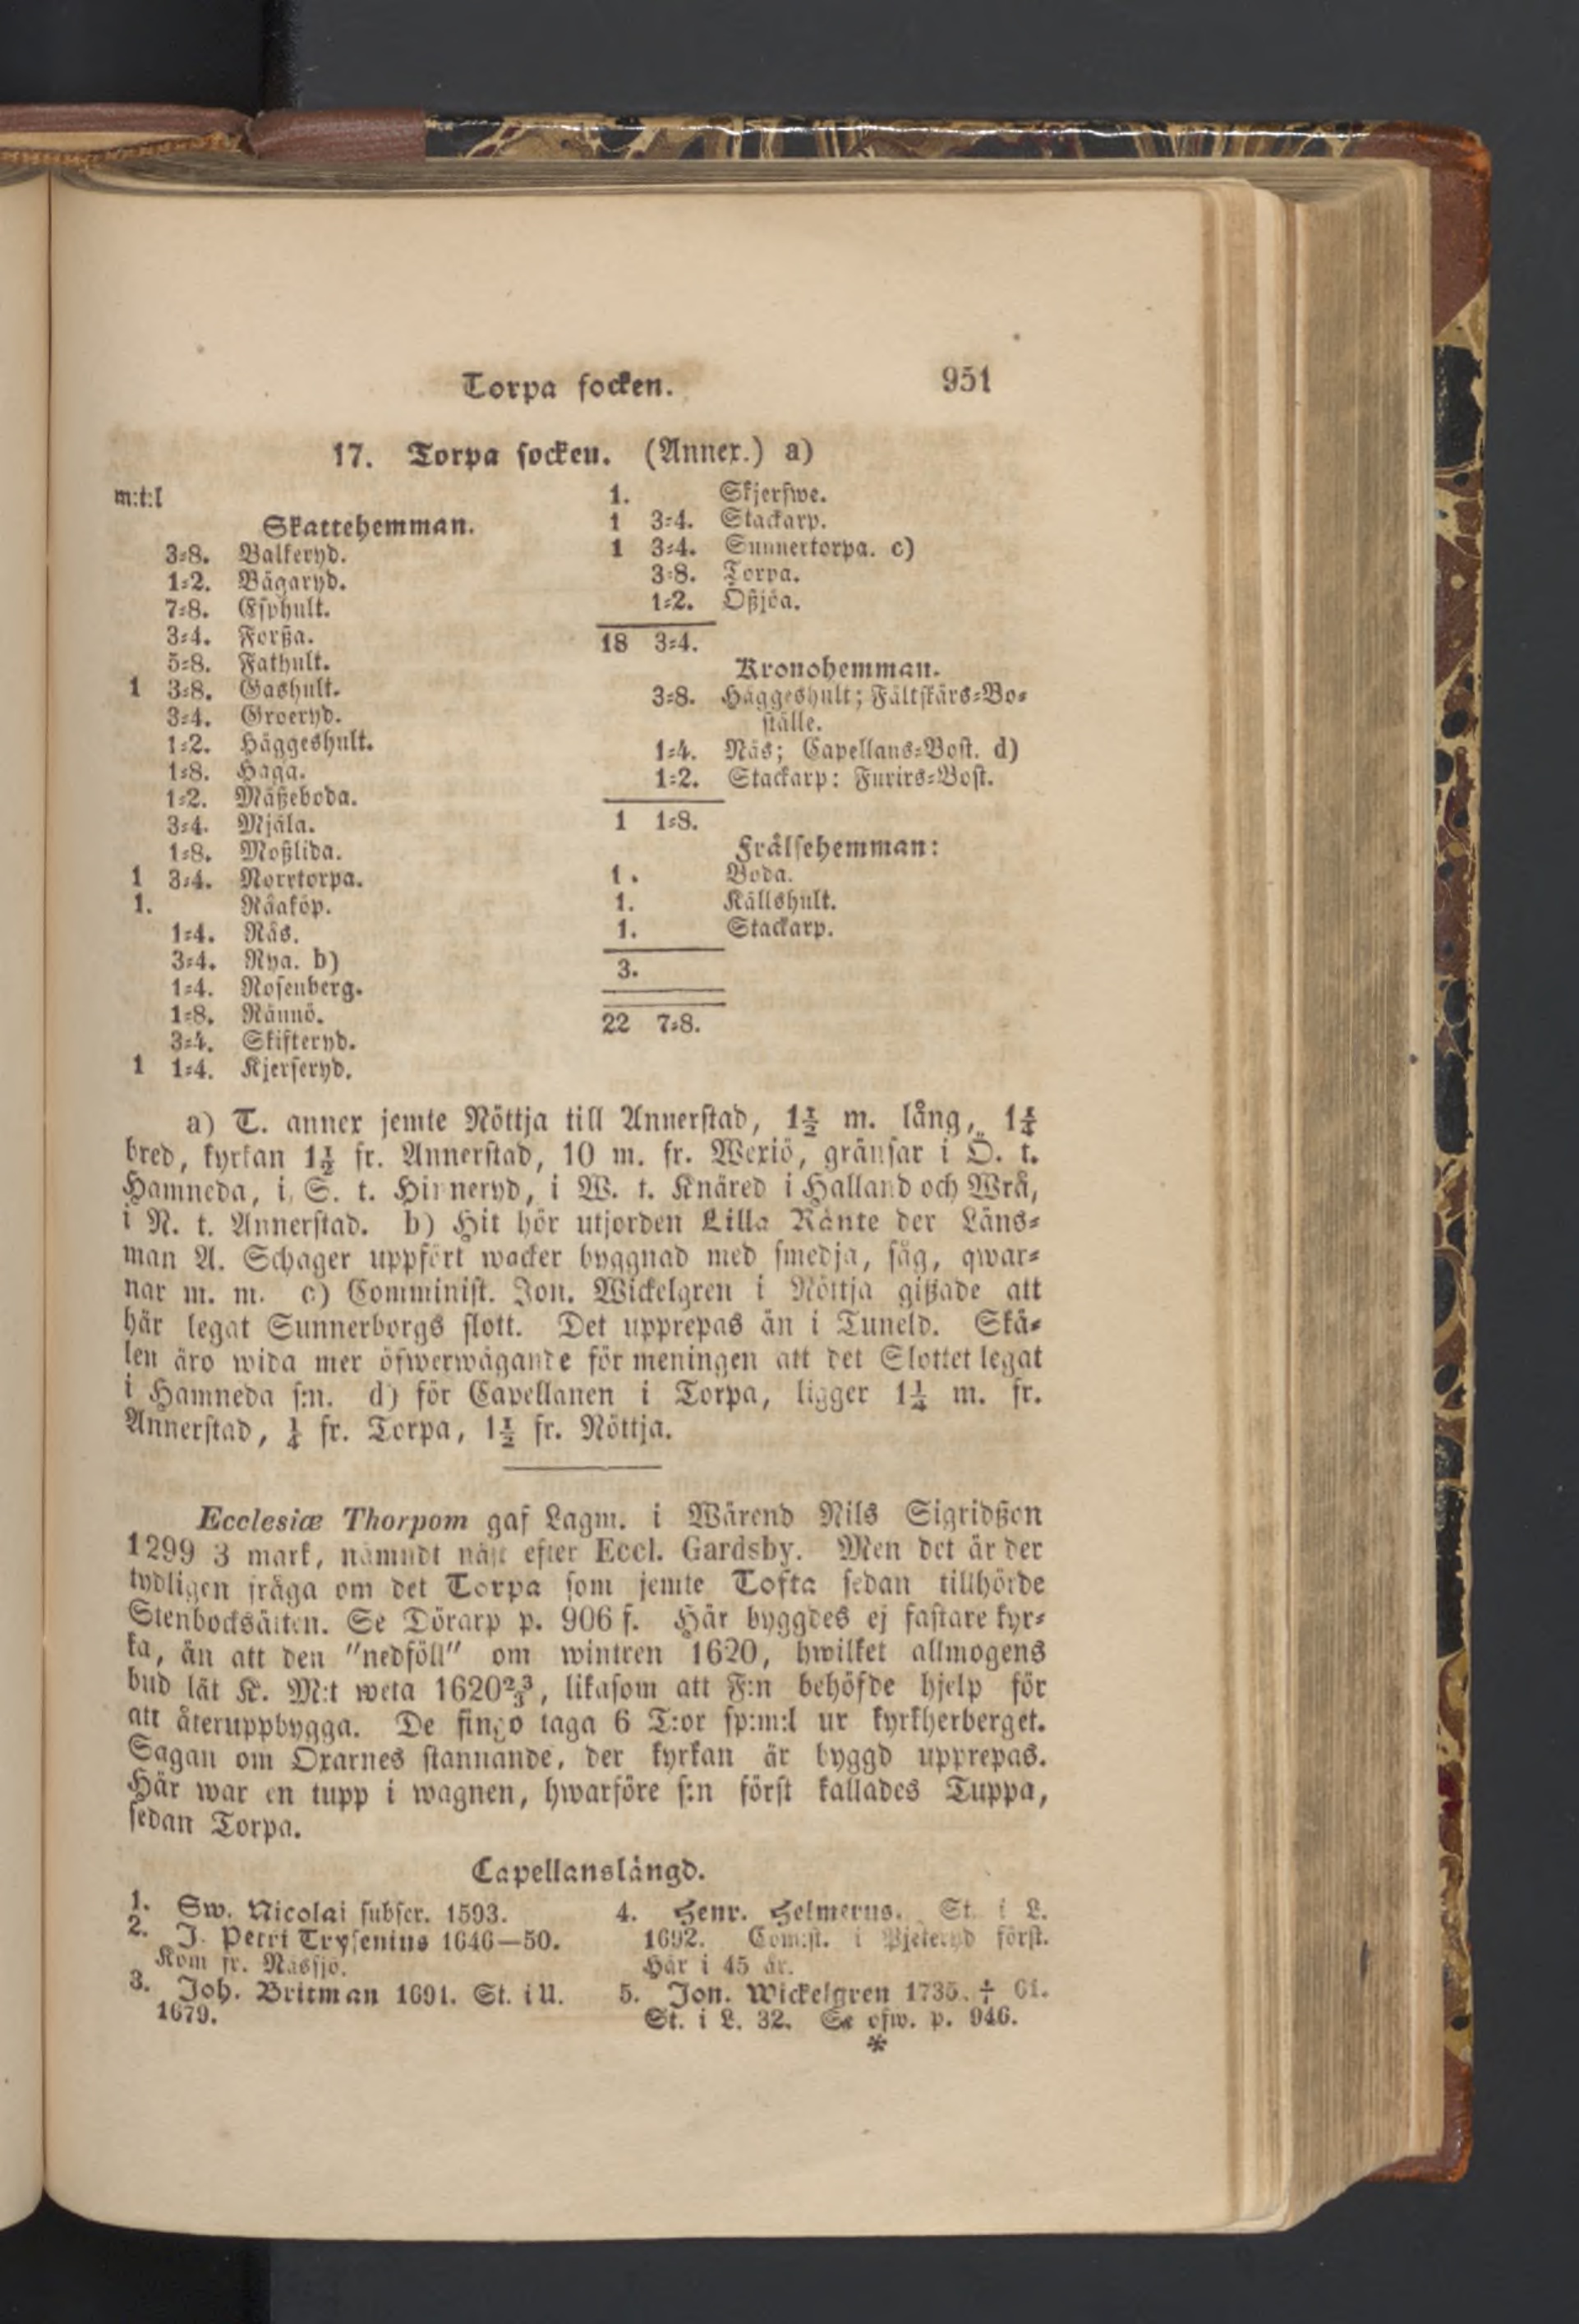 Torpa socken. 951
17. Torpa socken. (Annex.) a)
m:t:l
Skattehemman.
3=8. Balkeryd.
1=2. Bägaryd.
7=8. Esphult.
3=4. Forßa.
5=8. Fathult.
1 3=8. Gashult.
3=4. Groeryd.
1=2. Häggeshult.
1=8. Haga.
1=2. Mäßeboda.
3=4. Mjäla.
1=8. Moßlida.
1 3=4. Norrtorpa.
1. Nåaköp.
1=4. Näs.
3=4. Nya. b)
1=4. Rosenberg.
1=8. Rännö.
3=4. Skifteryd.
1 1=4. Kjerseryd.
1. Skjerfwe.
1 3=4. Stackarp.
1 3=4. Sunnertorpa. c)
3=8. Torpa.
1=2. Ößjöa.
18 3=4.
Kronohemman.
3=8. Häggeshult; Fältskärs=Bo=
ställe.
1=4. Näs; Capellans=Bost. d)
1=2. Stackarp: Furirs=Bost.
1 1=8.
Frälsehemman:
1. Boda.
1. Källshult.
1. Stackarp.
3.
22 7=8.
a) T. annex jemte Nöttja till Annerstad, 1½ m. lång, 1¼
bred, kyrkan 1½ fr. Annerstad, 10 m. fr. Wexiö, gränsar i Ö. t.
Hamneda, i S. t. Hinneryd, i W. t. Knäred i Halland och Wrå,
i N. t. Annerstad. b) Hit hör utjorden Lilla Ränte der Läns=
man A. Schager uppfört wacker byggnad med smedja, såg, qwar=
nar m. m. c) Comminist. Jon. Wickelgren i Nöttja gißade att
här legat Sunnerborgs slott. Det upprepas än i Tuneld. Skä=
len äro wida mer öfwerwägande för meningen att det Slottet legat
i Hamneda s:n. d) för Capellanen i Torpa, ligger 1¼ m. fr.
Annerstad, ¼ fr. Torpa, 1½ fr. Nöttja.
Ecclesiæ Thorpom gaf Lagm. i Wärend Nils Sigridßon
1299 3 mark, nämndt näst efter Eccl. Gardsby. Men det är der
tydligen fråga om det Torpa som jemte Tofta sedan tillhörde
Stenbocksätten. Se Dörarp p. 906 f. Här byggdes ej fastare kyr=
ka, än att den "nedföll" om wintren 1620, hwilket allmogens
bud lät K. M:t weta 1620 2/3 3, likasom att F:n behöfde hjelp för
att återuppbygga. De fingo taga 6 T:or sp:m:l ur kyrkherberget.
Sagan om Oxarnes stannande, der kyrkan är byggd upprepas.
Här war en tupp i wagnen, hwarföre s:n först kallades Tuppa,
sedan Torpa.
Capellanslängd.
1. Sw. Nicolai subscr. 1593.
2. J. Petri Trysenius 1646—50.
Kom fr. Nässjö.
3. Joh. Britman 1691. St. i U.
1679.
4. Henr. Helmerus. St. i L.
1692. Com:st. i Pjeteryd först.
Här i 45 år.
5. Jon. Wickelgren 1735. † 61.
St. i L. 32. Se ofw. p. 946.
*